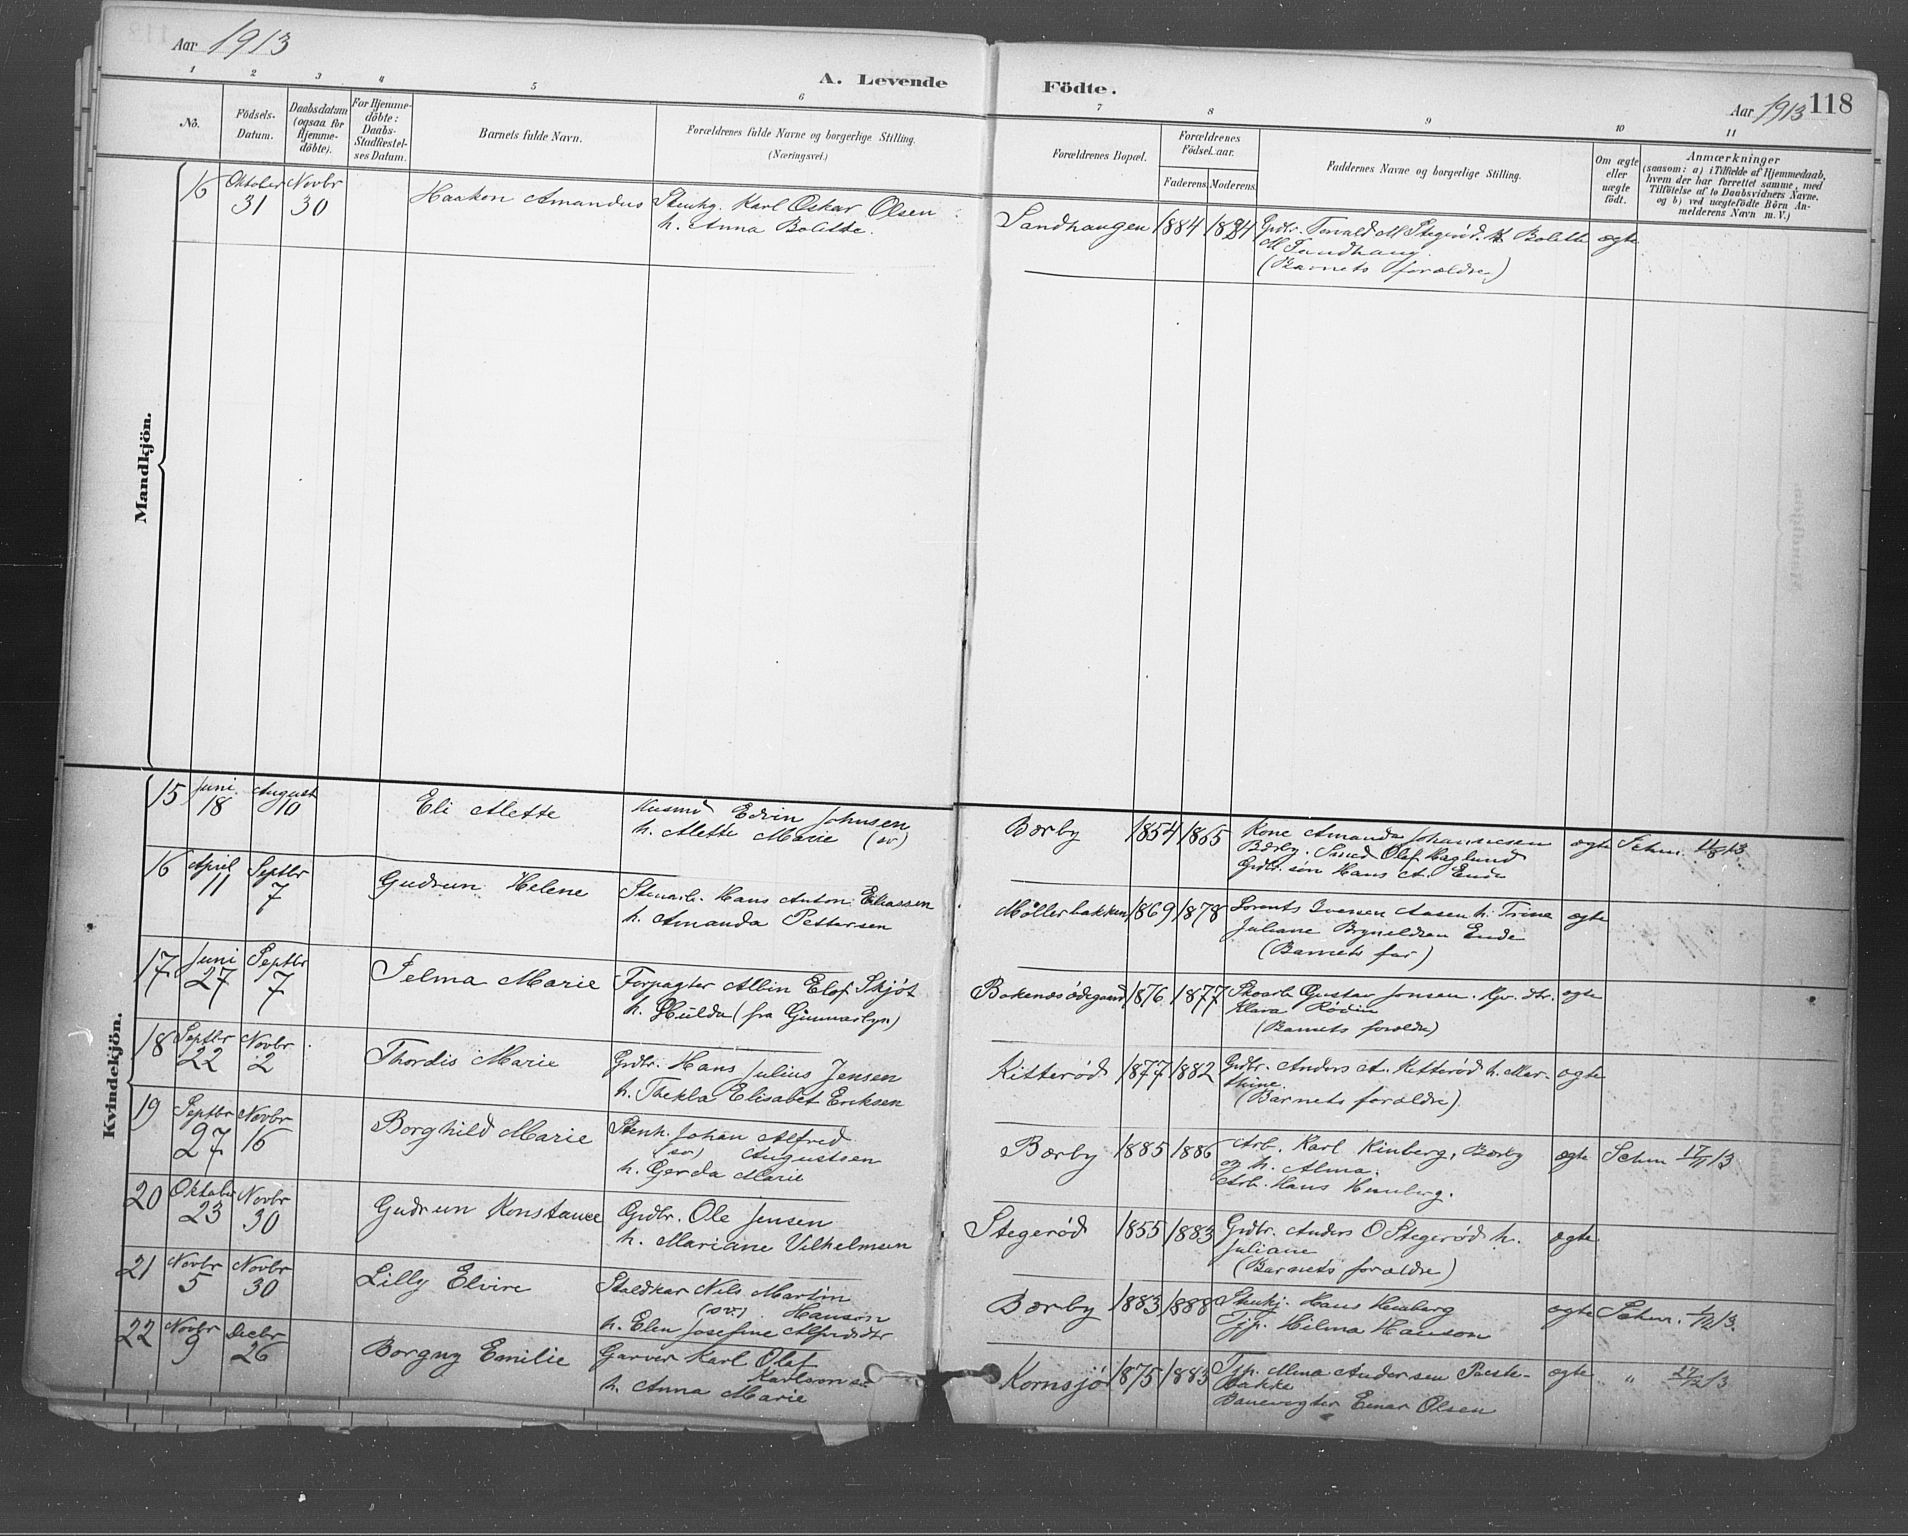 Aar 1913
A. Levende Födte.
Aar 1913 118
1 2 3 4 5 6 7 8 9 10 11
No.
Födsels-Datum.
Daabsdatum (ogsaa for Hjemme-döbte).
For Hjemme-döbte: Daabs-Stadfæstel-ses Datum.
Barnets fulde Navn.
Forældrenes fulde Navne og borgerlige Stilling.
(Næringsvei.)
Forældrenes Bopæl.
Forældrenes Födselsaar.
Faderens. Moderens.
Faddernes Navne og borgerlige Stilling.
Om ægte eller uægte födt.
Anmærkninger
(saasom: a) i Tilfælde af Hjemmedaab, hvem der har forrettet samme, med Tilföielse af to Daabsvidners Navne. og b) ved uægtefödte Börn An-melderens Navn m. V.)
Mandkjön.
16 Oktober 31 Novbr 30 Haakon Amandus
Stenhg. Karl Oskar Olsen
h. Anna Bolitte.
Sandhaugen 1884 1884
Grdbr. Torvald M Stegerød. Bolette
M Sandhaug.
(Barnets forældre)
ægte
Kvindekjön.
15 Juni 18 August 10 Eli Alette
Husmd Edvin Johnsen
h. Alette Marie (sv)
Bærby 1854 1865
Kone Amanda Johannesen
Bærby. Smed Olaf Haglund
Grdbr. søn Hans A. Ende
ægte Schm. 11/8 13.
16 April 11 Septbr 7 Gudrun Helene
Stenarb. Hans Anton Eliassen
h. Amanda Pettersen
Møllerbakken 1869 1878
Lorents Iversen Aasen h. Trine
Juliane Brynildsen Ende
(Barnets far)
ægte
17 Juni 27 Septbr 7 Selma Marie
Forpagter Albin Elof Skjöt
h. Hulda (fra Gunnarbyn)
Bakenæsødegaard 1876 1877
Skoarb Gustav Jonsen. Gv. dtr.
Klara Rødin
(Barnets forældre)
ægte
18 Septbr 22 Novbr 2 Thordis Marie
Grdbr. Hans Julius Jensen
h. Thekla Elisabet Eriksen
Kitterød 1877 1882
Grdbr. Anders A. Kitterød h. Mar-
thine.
(Barnets forældre).
ægte
19 Septbr 27 Novbr 16 Borghild Marie
Stenh. Johan Alfred
(sv) Augustsen
h. Gerda Marie
Bærby 1885 1886
Arb. Karl Kinberg, Bærby
og h. Alma.
Arb. Hans Hemberg.
ægte Schm 17/11 13
20 Oktober 23 Novbr 30 Gudrun Konstance
Grdbr. Ole Jensen
h. Mariane Vilhelmsen
Stegerød 1855 1883
Grdbr. Anders O Stegerød h.
Juliane
(Barnets forældre)
ægte
21 Novbr 5 Novbr 30 Lilly Elvire
Staldkar Nils Martin
(sv.) Hanson
h. Elen Josefine Alfredsdtr
Bærby 1883 1888
Stenhj. Hans Hemberg
Tjp. Hilma Hanson
ægte Schm. 1/12 13.
22 Novbr 9 Decbr 26 Borgny Emilie
Garver Karl Olaf
Karlson sv
h. Anna Marie
Kornsjø 1875 1883
Tjp. Alma Andersen
bakke
Banevogter Einar Olsen
ægte " 27/12 13